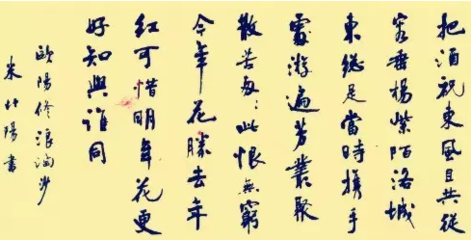 把酒祝東風且共從
容垂楊紫陌洛城
東總是當時攜手
處游遍芳叢聚
散苦匆〻此恨無窮
今年花勝去年
紅可惜明年花更
好知與誰同
歐陽修浪淘沙
陽書